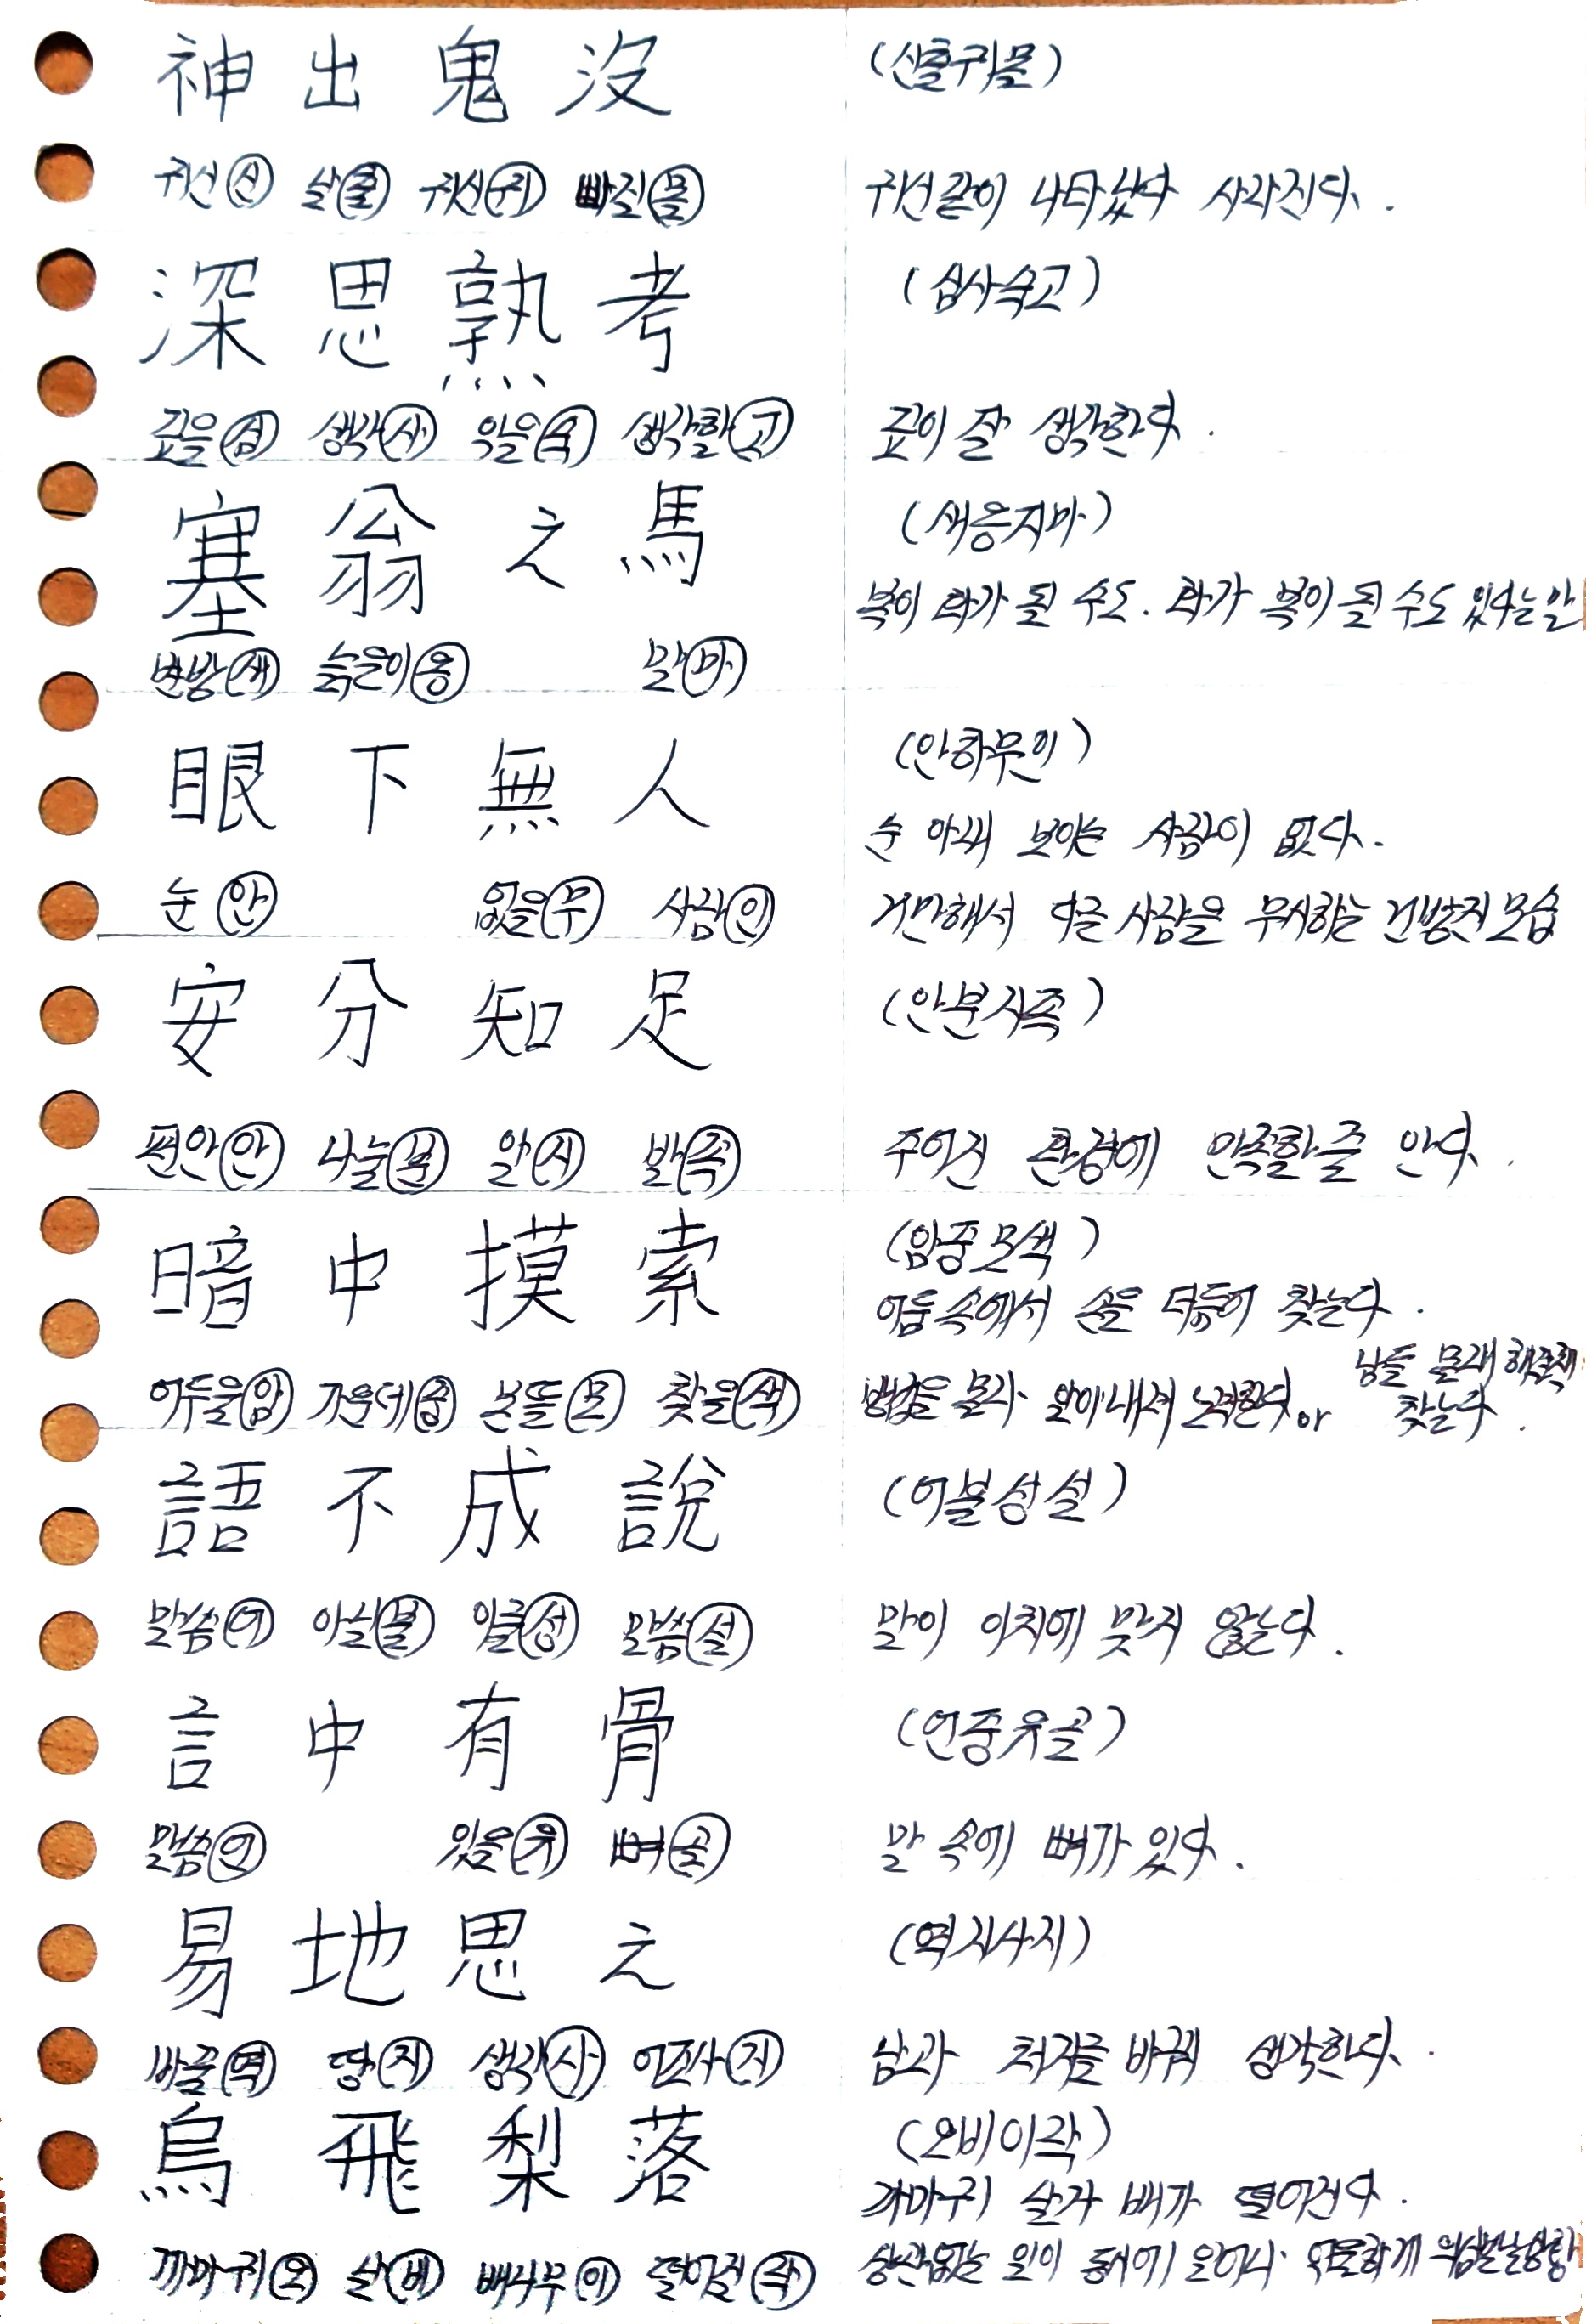 神 出 鬼 没 (신출귀몰)
귀신(신) 날(출) 귀신(귀) 빠질(몰) 귀신같이 나타났다 사라진다.
深 思 熟 考 (심사숙고)
깊을(심) 생각(사) 익을(숙) 생각할(고) 깊이 잘 생각한다.
塞 翁 之 馬 (새옹지마)
복이 화가 될 수도. 화가 복이 될 수도 있다는 말
변방(새) 늙은이(옹) 말(마)
眼 下 無 人 (안하무인)
눈 아래 보이는 사람이 없다.
눈(안) 없을(무) 사람(인) 거만해서 다른 사람을 무시하는 건방진 모습
安 分 知 足 (안분지족)
편안(안) 나눌(분) 알(지) 발(족) 주어진 환경에 만족할 줄 안다.
暗 中 摸 索 (암중모색)
어둠 속에서 손을 더듬어 찾는다.
어두울(암) 가운데(중) 본뜰(모) 찾을(색) 방법을 몰라 알아내려 노력한다 or 남들 몰래 해결책 찾는다.
語 不 成 說 (어불성설)
말씀(어) 아닐(불) 이룰(성) 말씀(설) 말이 이치에 맞지 않는다.
言 中 有 骨 (언중유골)
말씀(언) 있을(유) 뼈(골) 말 속에 뼈가 있다.
易 地 思 之 (역지사지)
바꿀(역) 땅(지) 생각(사) 어조사(지) 남과 처지를 바꿔 생각한다.
烏 飛 梨 落 (오비이락)
까마귀 날자 배가 떨어진다.
까마귀(오) 날(비) 배나무(이) 떨어질(락) 상관없는 일이 동시에 일어나 억울하게 의심받는 상황